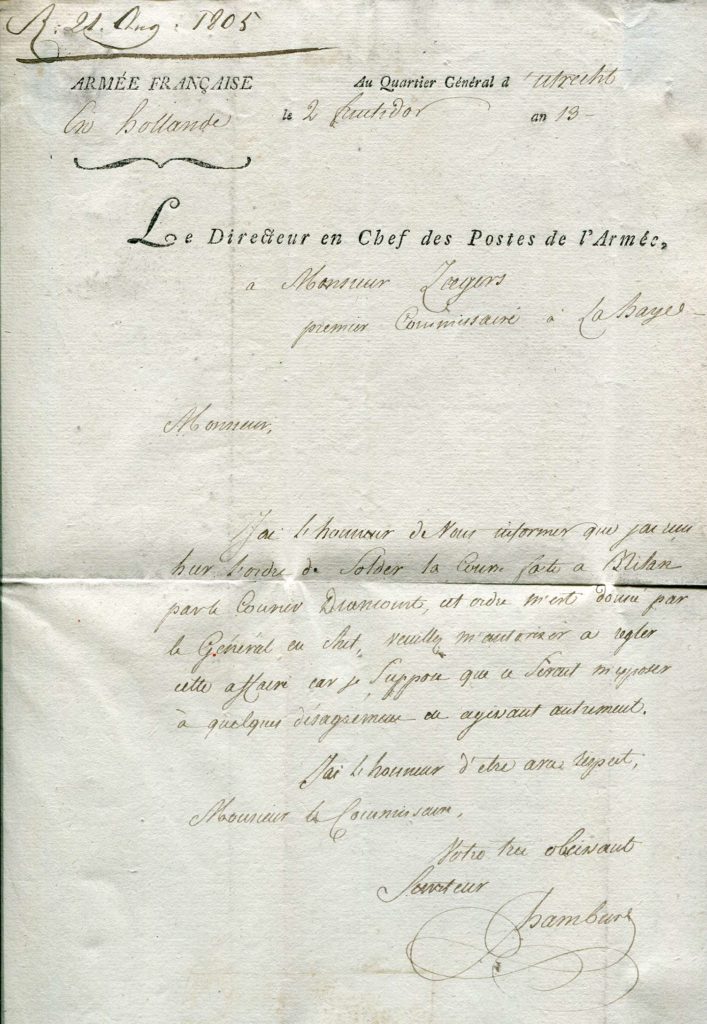 R: 21. Aug: 1805
ARMÉE FRANÇAISE Au Quartier Général d'utrecht
En hollande le 2 fructidor an 13-
Le Directeur en Chef des Postes de l'Armée,
a Monsieur
premier Commissaire à La haye-
Monsieur,
J'ai le honneur de Vous informer que j'ai reçu
hier l'ordre de Solder la Course faite a Milan
par le Courier Diancourt, cet ordre m'est donné par
le Général en Chef, veuillez m'autoriser a regler
cette affaire car je Suppose que ce Serait m'exposer
à quelques désagremens en agissant autrement.
J'ai le honneur d'etre avec respect,
Monsieur le Commissaire,
Votre tres obeissant
Serviteur
Chambure